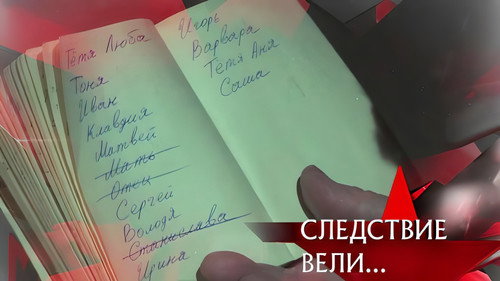 Тётя Люба
Тоня
Иван
Клавдия
Матвей
Мать
Отец
Сергей
Володя
Станислава
Ирина
Игорь
Варвара
Тётя Аня
Саша
СЛЕДСТВИЕ
ВЕЛИ...